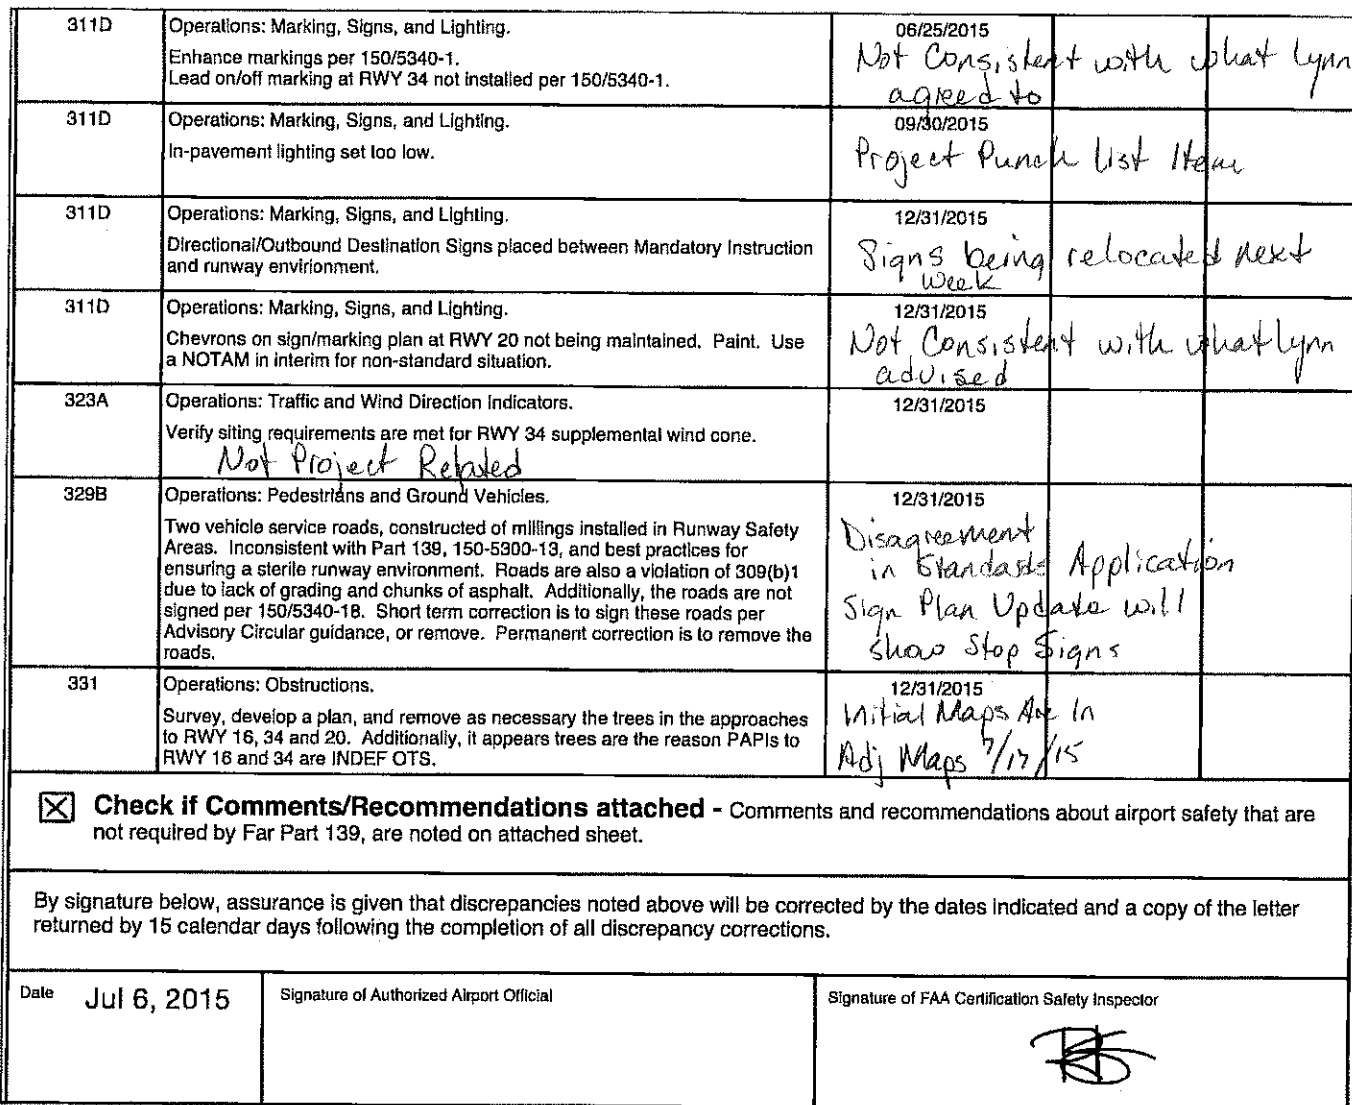 311D
Operations: Marking, Signs, and Lighting.
Enhance markings per 150/5340-1.
Lead on/off marking at RWY 34 not installed per 150/5340-1.
06/25/2015
Not Consistent with what Lynn
agreed to
311D
Operations: Marking, Signs, and Lighting.
In-pavement lighting set too low.
09/30/2015
Project Punch List Item
311D
Operations: Marking, Signs, and Lighting.
Directional/Outbound Destination Signs placed between Mandatory Instruction
and runway envirionment.
12/31/2015
Signs being relocated next
week
311D
Operations: Marking, Signs, and Lighting.
Chevrons on sign/marking plan at RWY 20 not being maintained. Paint. Use
a NOTAM in interim for non-standard situation.
12/31/2015
Not Consistent with what Lynn
advised
323A
Operations: Traffic and Wind Direction Indicators.
Verify siting requirements are met for RWY 34 supplemental wind cone.
Not Project Related
12/31/2015
329B
Operations: Pedestrians and Ground Vehicles.
Two vehicle service roads, constructed of millings installed in Runway Safety
Areas. Inconsistent with Part 139, 150-5300-13, and best practices for
ensuring a sterile runway environment. Roads are also a violation of 309(b)1
due to lack of grading and chunks of asphalt. Additionally, the roads are not
signed per 150/5340-18. Short term correction is to sign these roads per
Advisory Circular guidance, or remove. Permanent correction is to remove the
roads.
12/31/2015
Disagreement
in Standards Application
Sign Plan Update will
show Stop Signs
331
Operations: Obstructions.
Survey, develop a plan, and remove as necessary the trees in the approaches
to RWY 16, 34 and 20. Additionally, it appears trees are the reason PAPIs to
RWY 16 and 34 are INDEF OTS.
12/31/2015
Initial Maps Are In
Adj Maps 7/17/15
Check if Comments/Recommendations attached - Comments and recommendations about airport safety that are
not required by Far Part 139, are noted on attached sheet.
By signature below, assurance is given that discrepancies noted above will be corrected by the dates indicated and a copy of the letter
returned by 15 calendar days following the completion of all discrepancy corrections.
Date Jul 6, 2015
Signature of Authorized Airport Official
Signature of FAA Certification Safety Inspector